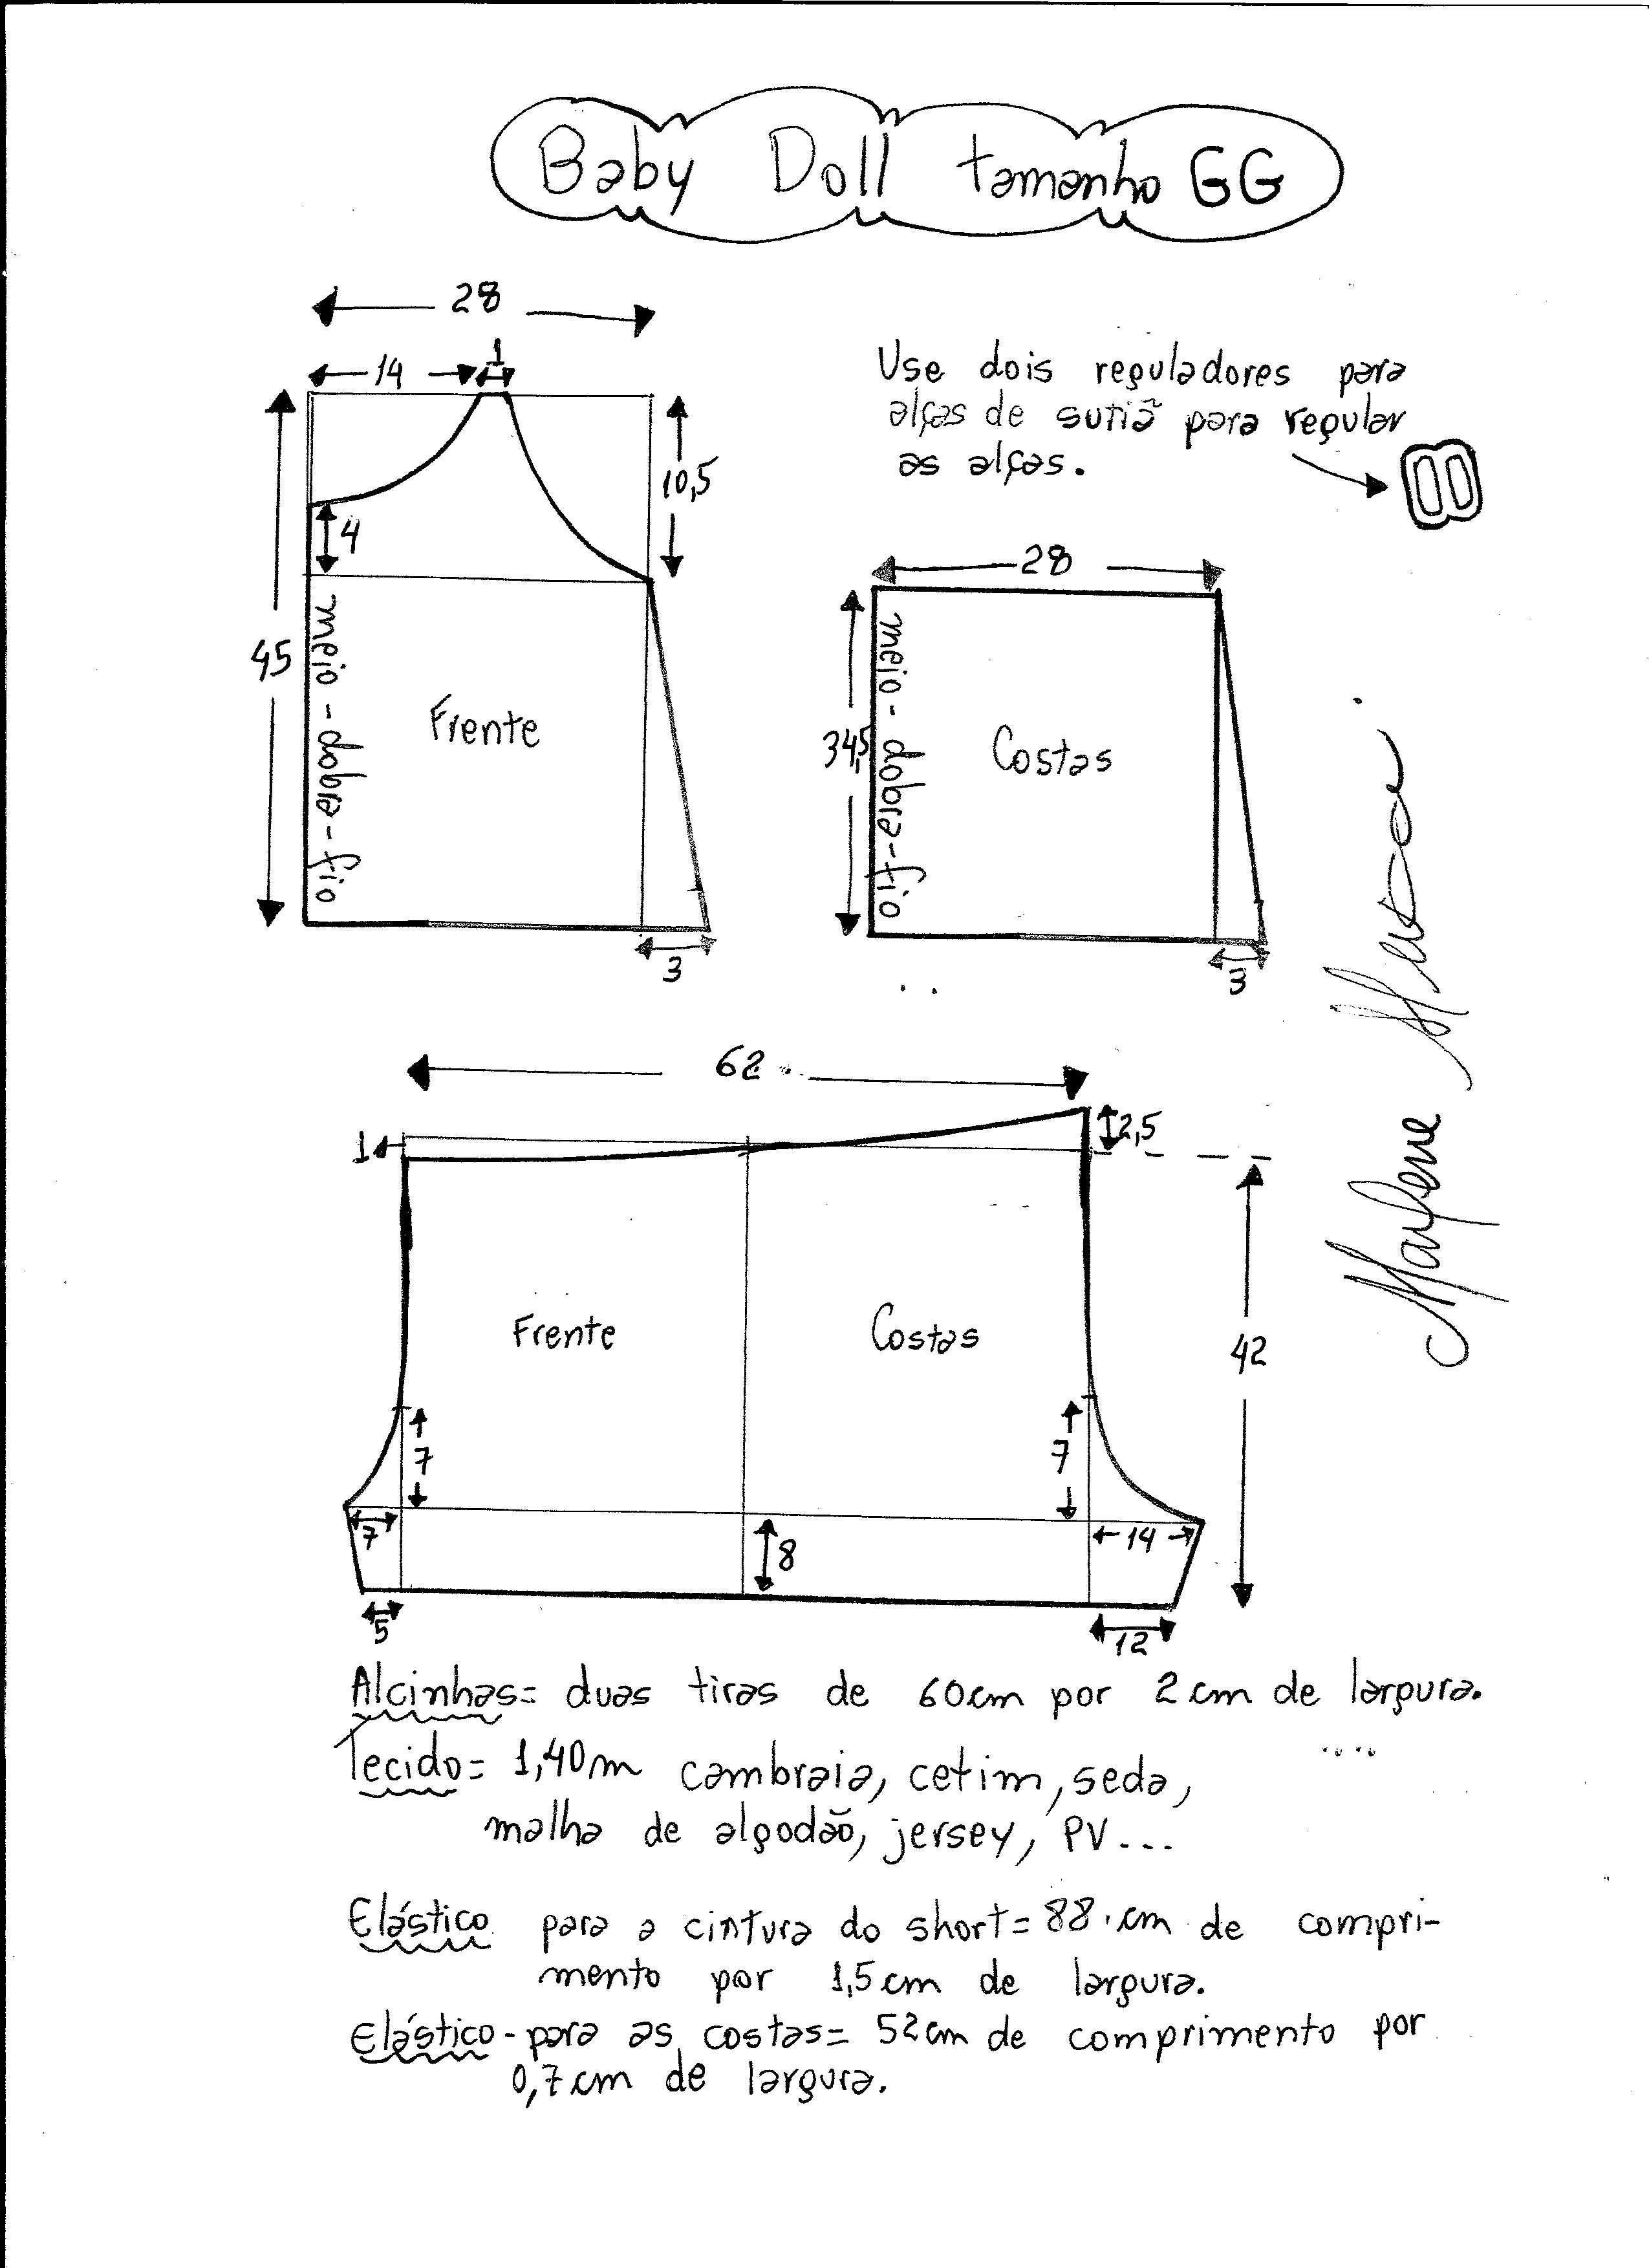 Baby Doll tamanho GG
28
14
1
45
10,5
4
meio - dobra - fio
Frente
3
Use dois reguladores para
alças de sutiã para regular
as alças.
28
34,5
meio - dobra - fio
Costas
3
62
1
2,5
Frente
Costas
42
7
7
7
14
8
5
12
Alcinhas= duas tiras de 60cm por 2cm de largura.
Tecido= 1,40m cambraia, cetim, seda,
malha de algodão, jersey, PV...
Elástico para a cintura do short= 88 cm de compri-
mento por 1,5cm de largura.
Elástico - para as costas= 52cm de comprimento por
0,7cm de largura.
Marlene